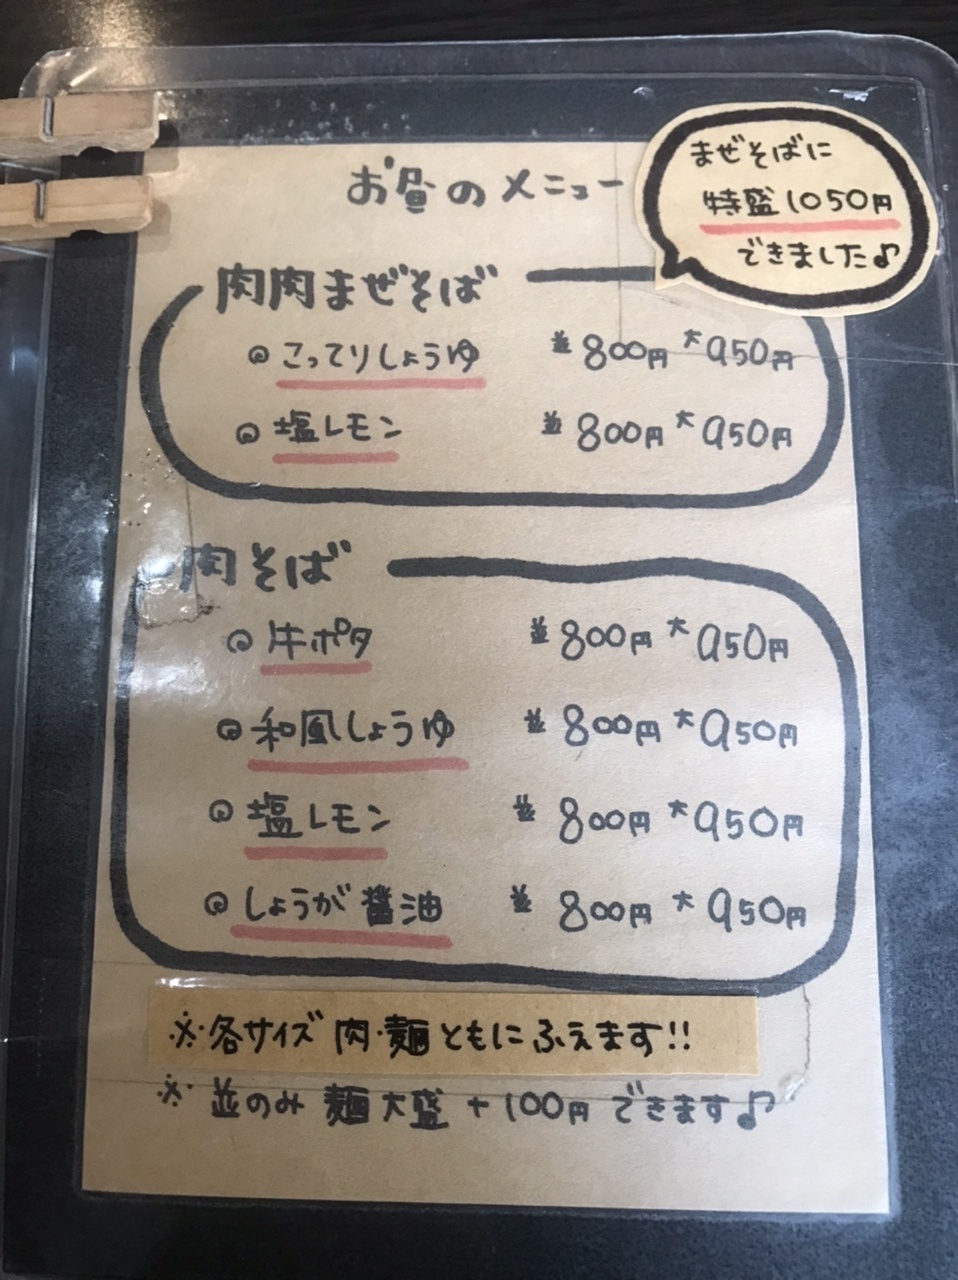 お昼のメニュー
まぜそばに
特盛1050円
できました♪
肉肉まぜそば
◎こってりしょうゆ 並800円 大950円
◎塩レモン 並800円 大950円
肉そば
◎牛ポタ 並800円 大950円
◎和風しょうゆ 並800円 大950円
◎塩レモン 並800円 大950円
◎しょうが醤油 並800円 大950円
※各サイズ 肉・麺ともにふえます!!
※並のみ 麺大盛+100円できます♪